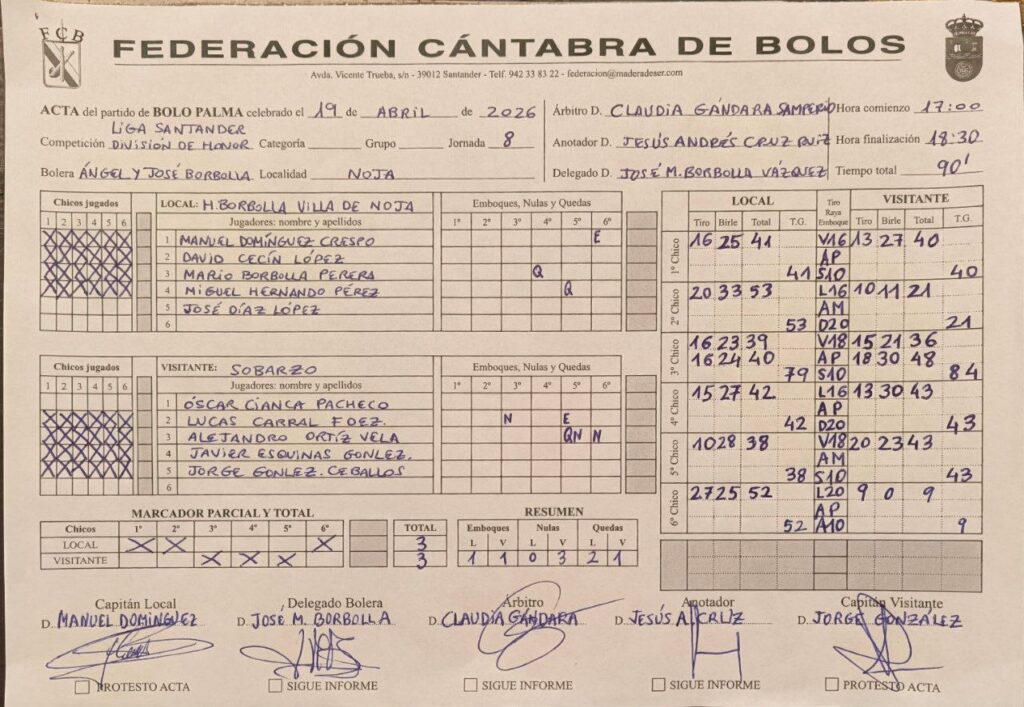 FCB
FEDERACIÓN CÁNTABRA DE BOLOS
Avda. Vicente Trueba, s/n - 39012 Santander - Telf. 942 33 83 22 - federacion@maderadeser.com
ACTA del partido de BOLO PALMA celebrado el 19 de ABRIL de 2026
LIGA SANTANDER
Competición DIVISIÓN DE HONOR Categoría Grupo Jornada 8
Bolera ÁNGEL Y JOSÉ BORBOLLA Localidad NOJA
Árbitro D. CLAUDIA GÁNDARA SAMPERIO Hora comienzo 17:00
Anotador D. JESÚS ANDRÉS CRUZ RUIZ Hora finalización 18:30
Delegado D. JOSÉ M. BORBOLLA VÁZQUEZ Tiempo total 90'
Chicos jugados LOCAL: H. BORBOLLA VILLA DE NOJA Emboques, Nulas y Quedas
1 2 3 4 5 6 Jugadores: nombre y apellidos 1º 2º 3º 4º 5º 6º
X X X X X X 1 MANUEL DOMÍNGUEZ CRESPO E
X X X X X X 2 DAVID CECÍN LÓPEZ
X X X X X X 3 MARIO BORBOLLA PERERA Q
X X X X X X 4 MIGUEL HERNANDO PÉREZ Q
5 JOSÉ DÍAZ LÓPEZ
6
Chicos jugados VISITANTE: SOBARZO Emboques, Nulas y Quedas
1 2 3 4 5 6 Jugadores: nombre y apellidos 1º 2º 3º 4º 5º 6º
1 ÓSCAR CIANCA PACHECO
X X X X X X 2 LUCAS CARRAL FDEZ. N E
X X X X X X 3 ALEJANDRO ORTÍZ VELA QN N
X X X X X X 4 JAVIER ESQUINAS GONLEZ.
X X X X X X 5 JORGE GONLEZ. CEBALLOS
6
MARCADOR PARCIAL Y TOTAL
Chicos 1º 2º 3º 4º 5º 6º TOTAL
LOCAL X X X 3
VISITANTE X X X 3
RESUMEN
Emboques Nulas Quedas
L V L V L V
1 1 0 3 2 1
LOCAL Tiro Raya Emboque VISITANTE
Tiro Birle Total T.G. Tiro Birle Total T.G.
1º Chico 16 25 41 V16 13 27 40
AP
41 S10 40
2º Chico 20 33 53 L16 10 11 21
AM
53 D20 21
3º Chico 16 23 39 V18 15 21 36
16 24 40 AP 18 30 48
79 S10 84
4º Chico 15 27 42 L16 13 30 43
AP
42 D20 43
5º Chico 10 28 38 V18 20 23 43
AM
38 S10 43
6º Chico 27 25 52 L20 9 0 9
AP
52 A10 9
Capitán Local Delegado Bolera Árbitro Anotador Capitán Visitante
D. MANUEL DOMÍNGUEZ D. JOSÉ M. BORBOLLA D. CLAUDIA GÁNDARA D. JESÚS A. CRUZ D. JORGE GONZÁLEZ
PROTESTO ACTA SIGUE INFORME SIGUE INFORME SIGUE INFORME PROTESTO ACTA